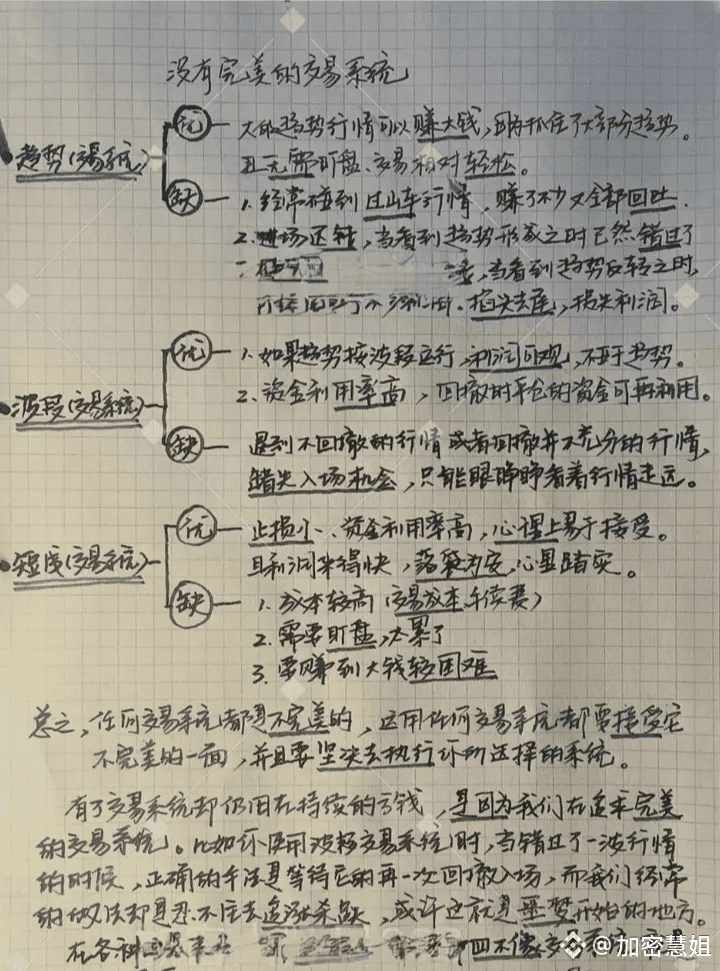 没有完美的交易系统
趋势(交易系统)
优
大的趋势行情可以赚大钱,因为抓住了大部分趋势。
且无需盯盘、交易相对轻松。
缺
1. 经常碰到过山车行情,赚了不少又全部回吐.
2. 进场迟钝,当看到趋势形成之时已然错过了
,当看到趋势反转之时,
掐头去尾,损失利润。
波段(交易系统)
优
1. 如果趋势按波段运行,利润可观,不亚于趋势。
2. 资金利用率高,回撤时平仓的资金可再利用。
缺
遇到不回撤的行情或者回撤并不充分的行情,
错失入场机会,只能眼睁睁看着行情走远。
短线(交易系统)
优
止损小、资金利用率高,心理上易于接受。
且利润来得快,落袋为安,心里踏实。
缺
1. 成本较高(交易成本,手续费)
2. 需要盯盘,太累了
3. 要赚到大钱较困难
总之,任何交易系统都是不完美的,运用任何交易系统都要接受它
不完美的一面,并且要坚决去执行你所选择的系统。
有了交易系统却仍旧在持续的亏钱,是因为我们在追求完美
的交易系统。比如你使用波段交易系统时,当错过了一波行情
的时候,正确的手法是等待它的再一次回撤入场,而我们经常
的做法却是忍不住去追涨杀跌,或许这就是噩梦开始的地方。
在各种 四不像
@加密慧姐